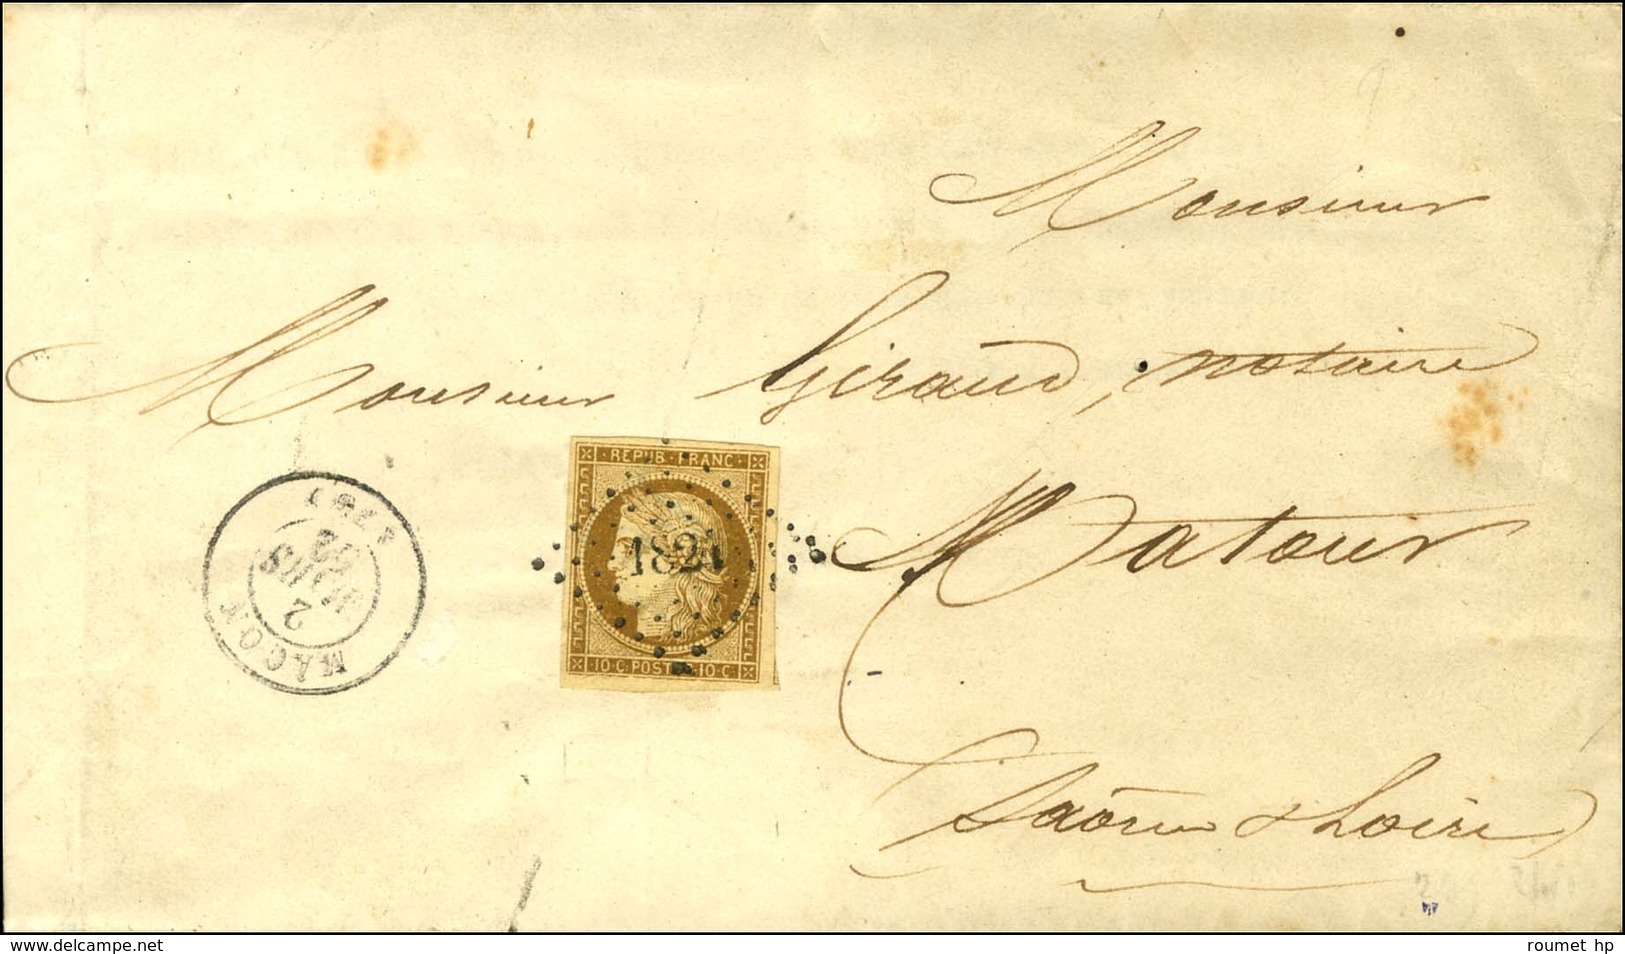 Monsieur
Monsieur Giraud, notaire
Matour
Saône & Loire
REPUB. FRANC.
1821
10.C. POSTE 10.C.
MACON
2
MARS
(70)
www.delcampe.net
roumet hp